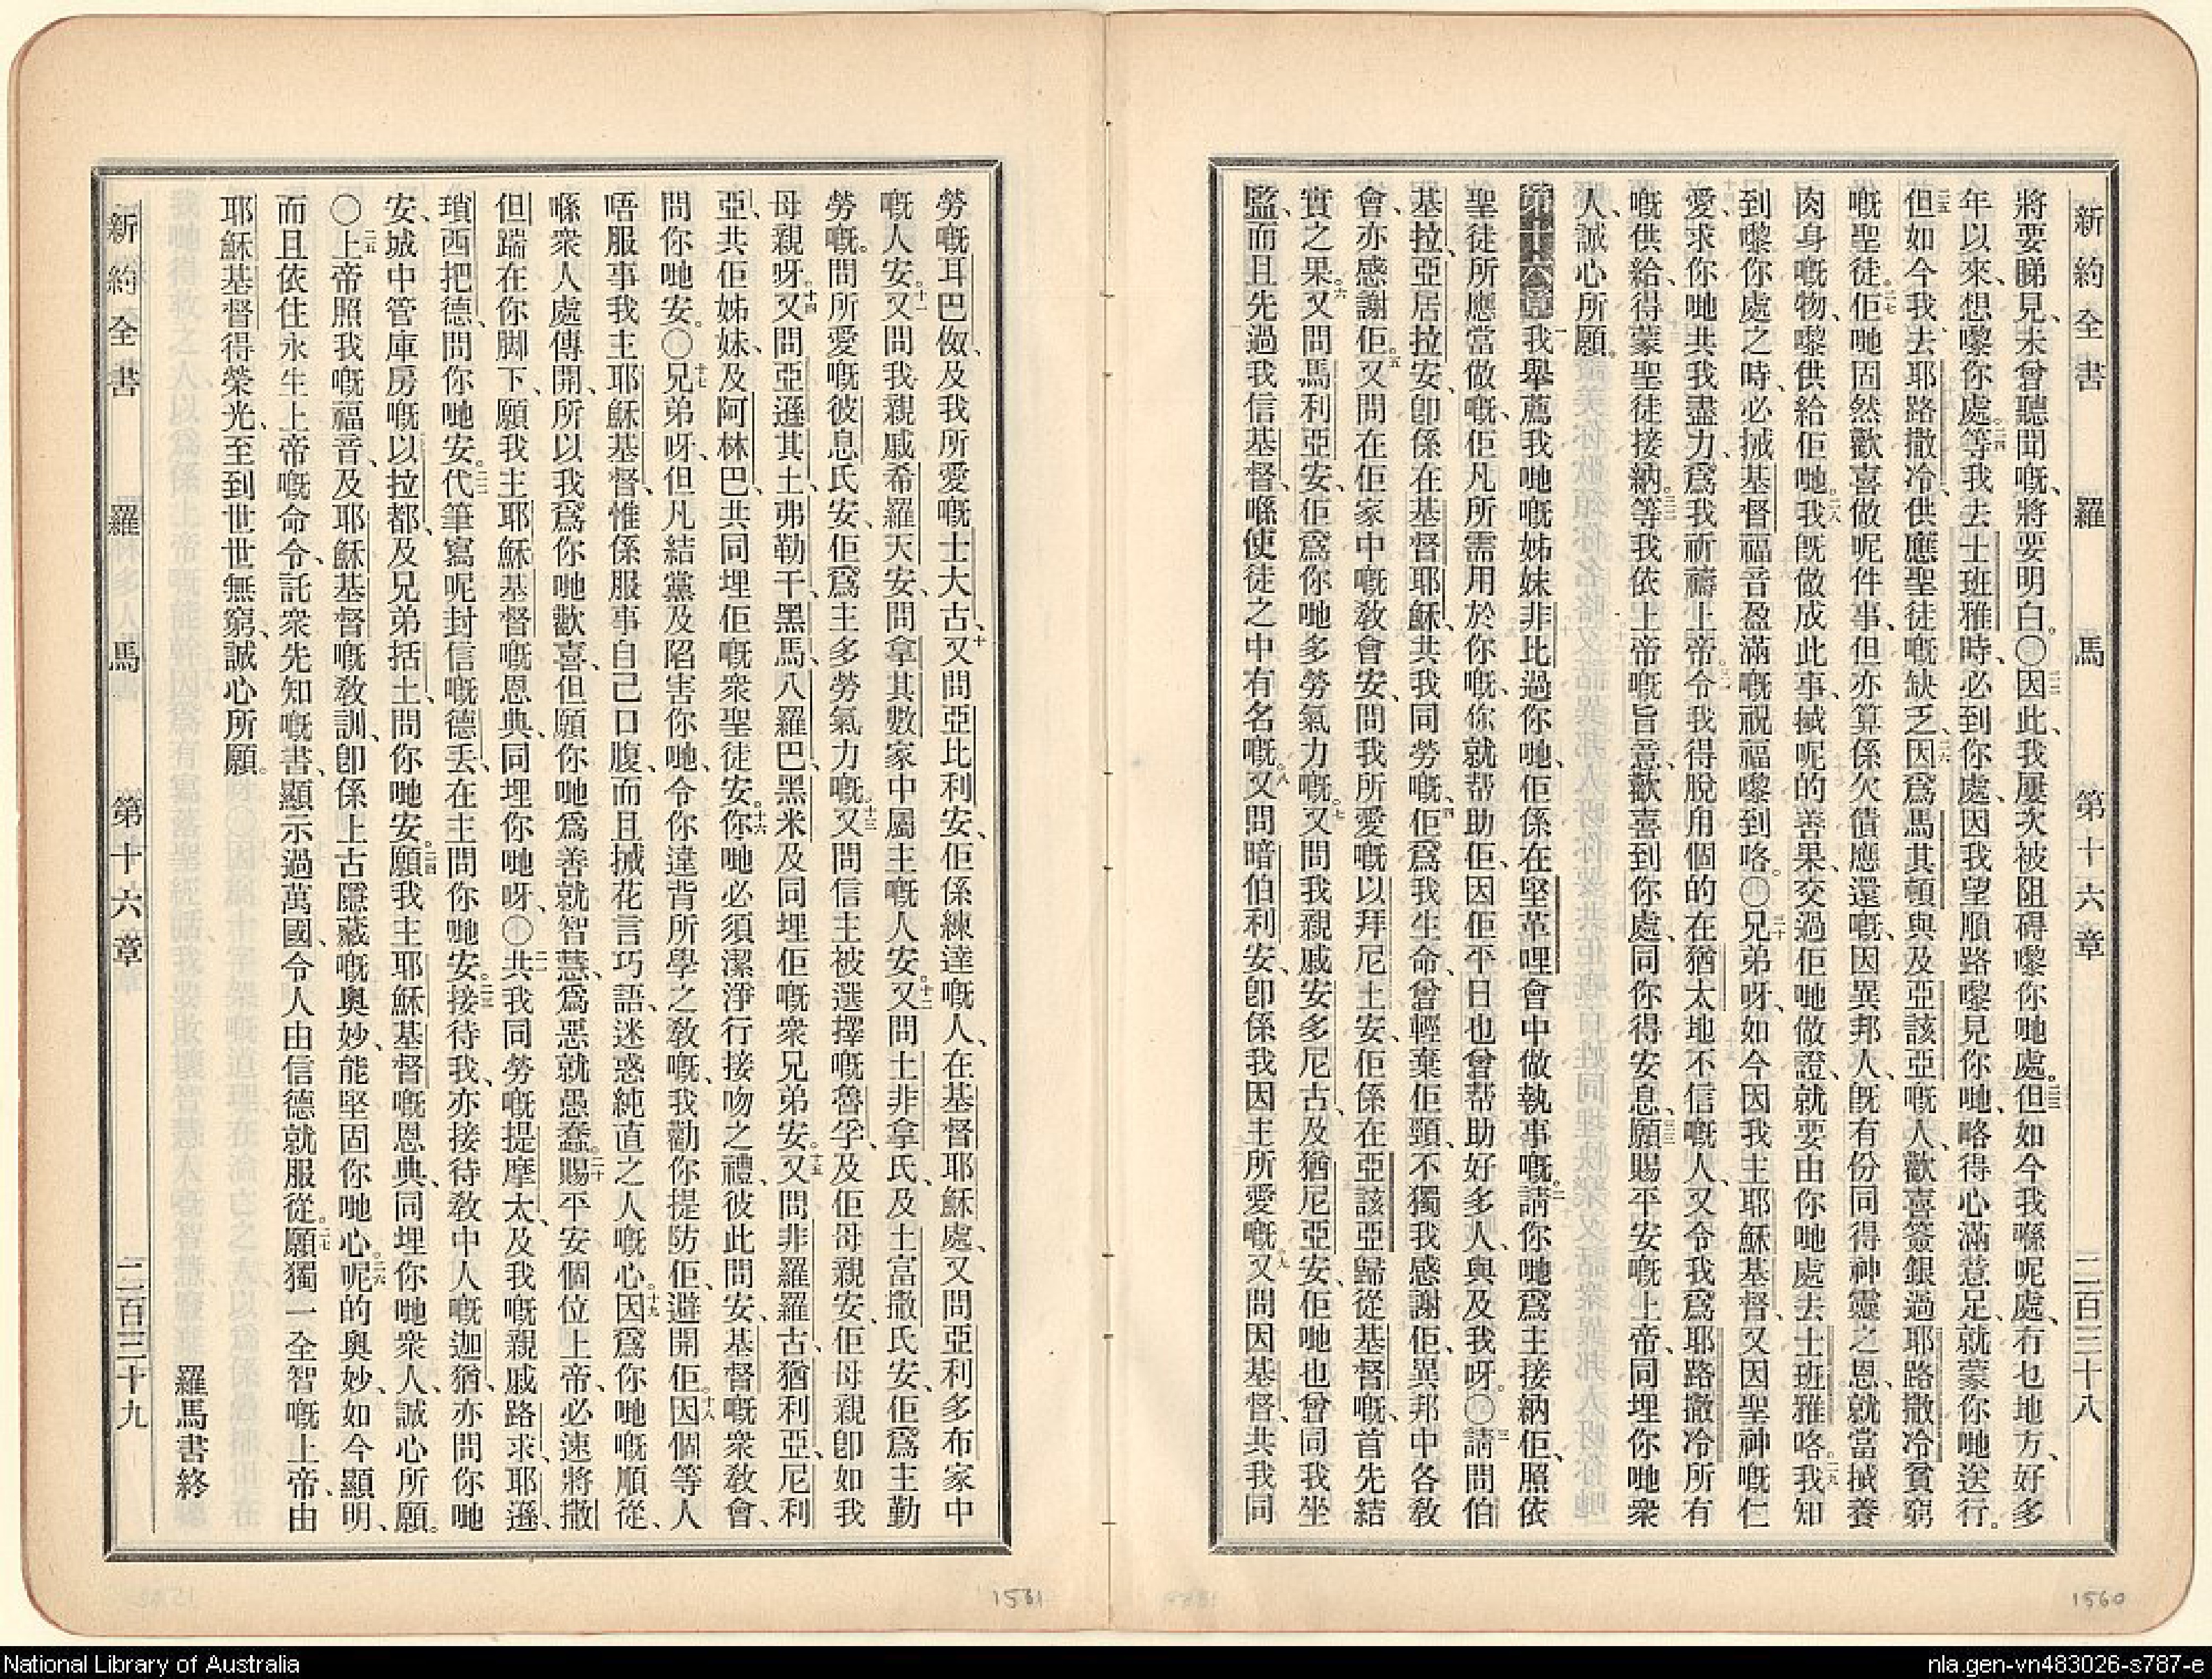 新約全書 羅馬 第十六章 二百三十八
將要睇見、未曾聽聞嘅、將要明白。〇二二因此、我屢次被阻碍嚟你哋處。二三但如今我喺呢處、冇乜地方、好多
年以來、想嚟你處。二四等我去士班雅時、必到你處、因我望順路嚟見你哋、略得心滿意足、就蒙你哋送行。
二五但如今我去耶路撒冷、供應聖徒嘅缺乏。二六因爲馬其頓與及亞該亞嘅人、歡喜簽銀過耶路撒冷貧窮
嘅聖徒。二七佢哋固然歡喜做呢件事、但亦算係欠債應還嘅、因異邦人、旣有份同得神靈之恩、就當搣養
肉身嘅物、嚟供給佢哋。二八我旣做成此事、搣呢的善果、交過佢哋做證、就要由你哋處去士班雅咯。二九我知
到嚟你處之時、必搣基督福音盈滿嘅祝福嚟到咯。〇三十兄弟呀、如今因我主耶穌基督、又因聖神嘅仁
愛、求你哋共我盡力、爲我祈禱上帝。三一令我得脫用個的在猶太地不信嘅人、又令我爲耶路撒冷所有
嘅供給、得蒙聖徒接納。三二等我依上帝嘅旨意、歡喜到你處、同你得安息、三三願賜平安嘅上帝、同埋你哋衆
人、誠心所願。
第十六章一我舉薦我哋嘅姊妹非比過你哋、佢係在堅革哩會中做執事嘅。二請你哋爲主接納佢、照依
聖徒所應當做嘅、佢凡所需用於你嘅、你就帮助佢、因佢平日也曾帮助好多人、與及我呀。〇三請問伯
基拉、亞居拉安、卽係在基督耶穌、共我同勞嘅、四佢爲我生命、曾輕棄佢頸、不獨我感謝佢、異邦中各敎
會、亦感謝佢。五又問在佢家中嘅敎會安、問我所愛嘅以拜尼土安、佢係在亞該亞歸從基督嘅、首先結
實之果。六又問馬利亞安、佢爲你哋多勞氣力嘅。七又問我親戚安多尼古、及猶尼亞安、佢哋也曾同我坐
監、而且先過我信基督、喺使徒之中有名嘅、八又問暗伯利安、卽係我因主所愛嘅、九又問因基督、共我同
1560
新約全書 羅馬 第十六章 二百三十九
勞嘅耳巴伮、及我所愛嘅士大古、十又問亞比利安、佢係練達嘅人、在基督耶穌處、又問亞利多布家中
嘅人安。十一又問我親戚希羅天安、問拿其數家中屬主嘅人安。十二又問土非拿氏、及土富撒氏安、佢爲主勤
勞嘅。問所愛嘅彼息氏安、佢爲主多勞氣力嘅。十三又問信主被選擇嘅魯孚、及佢母親安、佢母親卽如我
母親呀。十四又問亞遜其土、弗勒干、黑馬、八羅巴、黑米、及同埋佢嘅衆兄弟安。十五又問非羅羅古、猶利亞、尼利
亞、共佢姊妹、及阿林巴、共同埋佢嘅衆聖徒安。十六你哋必須潔淨行接吻之禮、彼此問安、基督嘅衆敎會、
問你哋安。〇十七兄弟呀、但凡結黨及陷害你哋、令你違背所學之敎嘅、我勸你提防佢、避開佢。十八因個等人
唔服事我主耶穌基督、惟係服事自己口腹、而且搣花言巧語、迷惑純直之人嘅心。十九因爲你哋嘅順從、
喺衆人處傳開、所以我爲你哋歡喜、但願你哋爲善就智慧、爲惡就愚蠢。二十賜平安個位上帝、必速將撒
但踹在你脚下、願我主耶穌基督嘅恩典、同埋你哋呀、〇二一共我同勞嘅提摩太、及我嘅親戚路求、耶遜、
瑣西把德、問你哋安。二二代筆寫呢封信嘅德丟、在主問你哋安。二三接待我、亦接待敎中人嘅迦猶、亦問你哋
安、城中管庫房嘅以拉都、及兄弟括土、問你哋安。二四願我主耶穌基督嘅恩典、同埋你哋衆人、誠心所願。
〇二五上帝照我嘅福音、及耶穌基督嘅敎訓、卽係上古隱藏嘅奧妙、能堅固你哋心。二六呢的奧妙、如今顯明、
而且依住永生上帝嘅命令、託衆先知嘅書、顯示過萬國、令人由信德就服從。二七願獨一全智嘅上帝、由
耶穌基督得榮光、至到世世無窮、誠心所願。
羅馬書終
1561
National Library of Australia
nla.gen-vn483026-s787-e